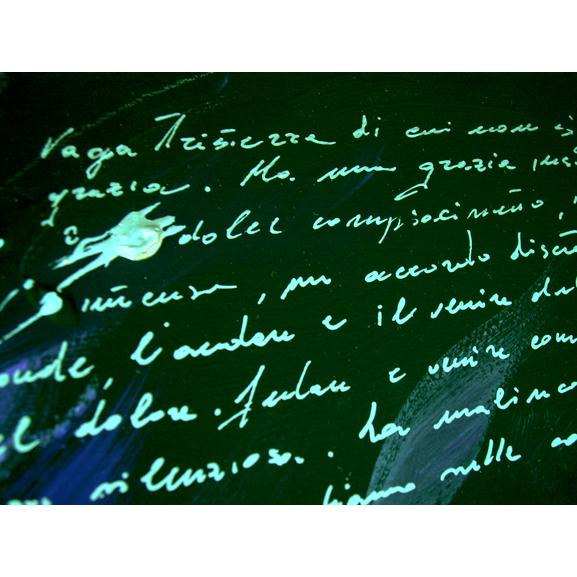 Vaga Tristezza di cui non è
grazia. Ma una grazia
e dolce compiacimento,
immensa, un accordo
onde, l'andare e il venire del
el dolore. Andare e venire com
silenzioso. La malinco
nelle